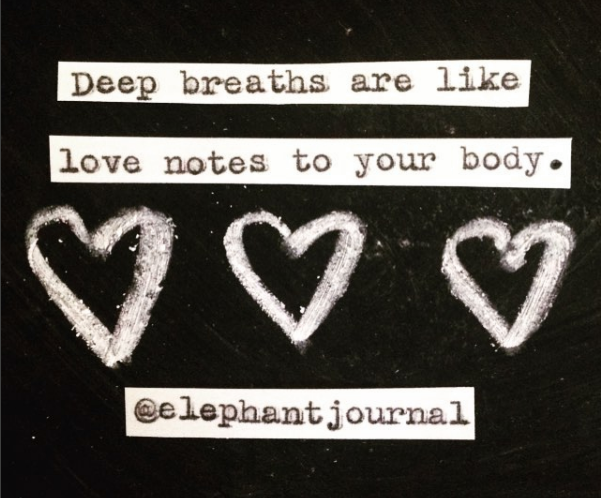 Deep breaths are like
love notes to your body.
@elephantjournal